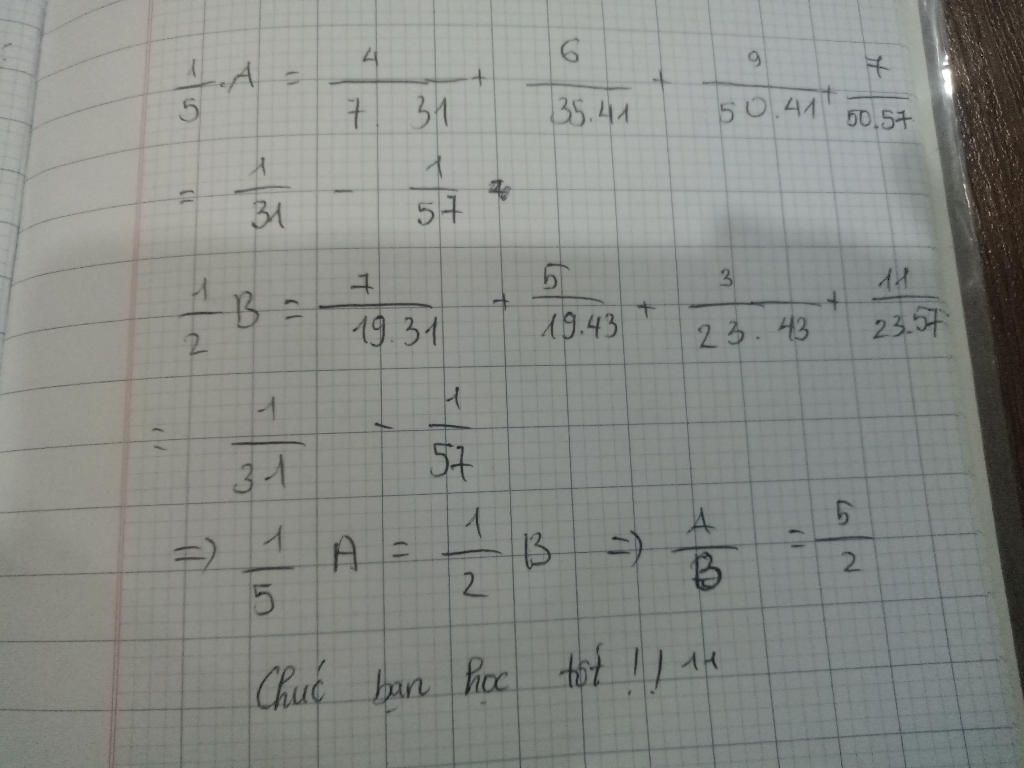 1/5 . A = 4/7. 31 + 6/35.41 + 9/50.41 + 7/50.57
= 1/31 - 1/57
1/2 B = 7/19.31 + 5/19.43 + 3/23.43 + 11/23.57
= 1/31 - 1/57
=> 1/5 A = 1/2 B => A/B = 5/2
Chuć bạn học tốt !! 11